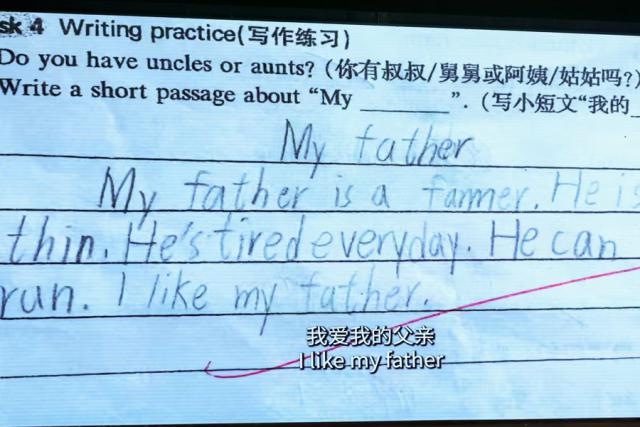 sk 4 Writing practice(写作练习)
Do you have uncles or aunts? (你有叔叔/舅舅或阿姨/姑姑吗?)
Write a short passage about “My ________”. (写小短文“我的_
My father
My father is a farmer. He is
thin. He's tired everyday. He can
run. I like my father.
我爱我的父亲
I like my father